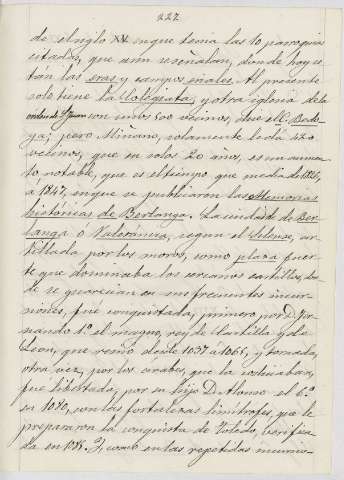 222
de el siglo XV. en que tenia las 10 parroquias
citadas, que aun señalan, donde hoy es
tán las eras y campos eriales. Al presente
solo tiene la Colegiata, y otra iglesia de la
con unos 500 vecinos, dice el C. Bedo
ya; pero Miñano, solamente le dá 420
vecinos, que en solos 20 años, es un aumen
to, notable, que es el tiempo que media de 1826,
a 1847, en que se publicaron las Memorias
históricas de Berlanga. La ciudad de Ber
langa ó Valeránica, segun el Silense, ar
tillada por los moros, como plaza fuer
te que dominaba los cercanos castillos, don
de se guarecian en sus frecuentes incur
siones, fué conquistada, primero por D. Fer
nando 1º el magno, rey de Castilla y de
Leon, que reinó desde 1037 á 1065, y tomada,
otra vez, por los árabes, que la codiciaban,
fué libertada, por su hijo D. Alonso el 6º
en 1080, con las fortalezas limítrofes, que le
prepararon la conquista de Toledo, verifica
da en 1085. Y, como en las repetidas incursio-